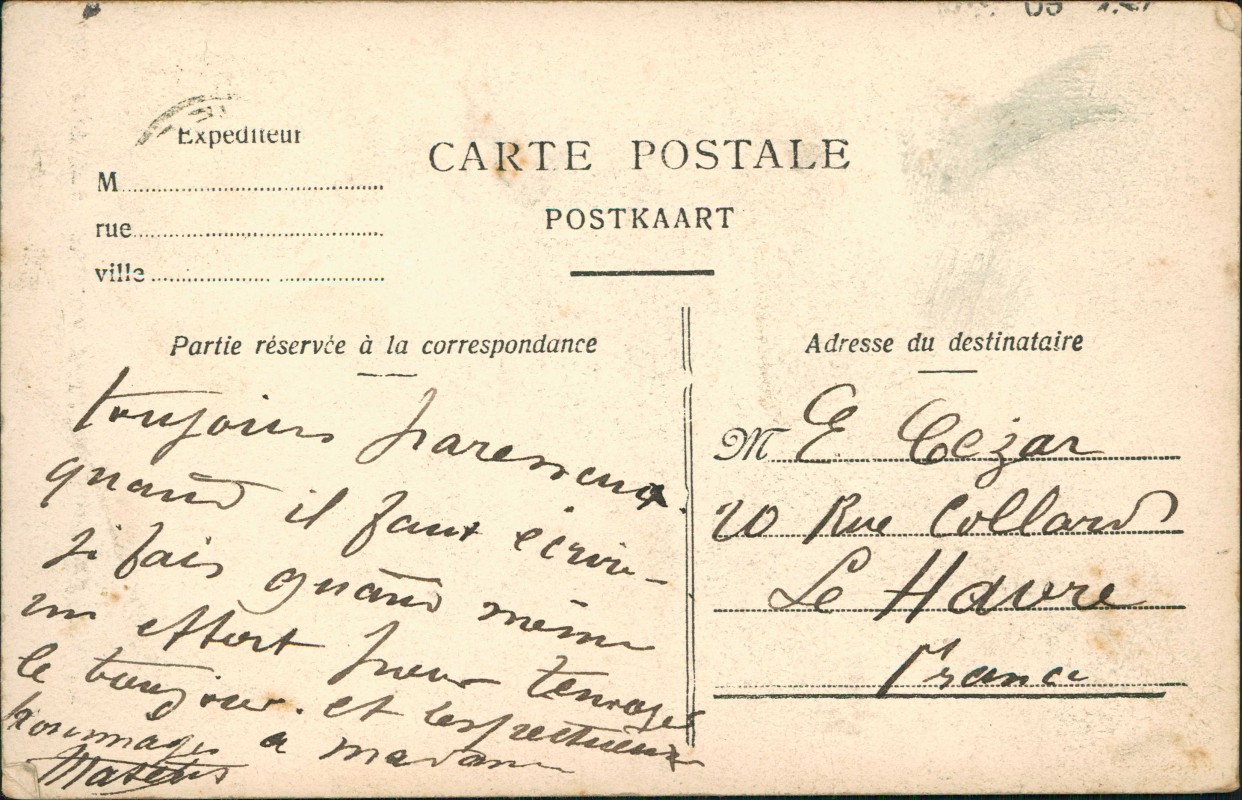 Expediteur
M
rue
ville
CARTE POSTALE
POSTKAART
Partie réservée à la correspondance
toujours paresseux.
quand il faut écrire
je fais quand même
un effort pour t'envoyer
le bonjour. et respectueux
hommages a madame
Adresse du destinataire
M E Cezar
20 Rue Collard
Le Havre
France